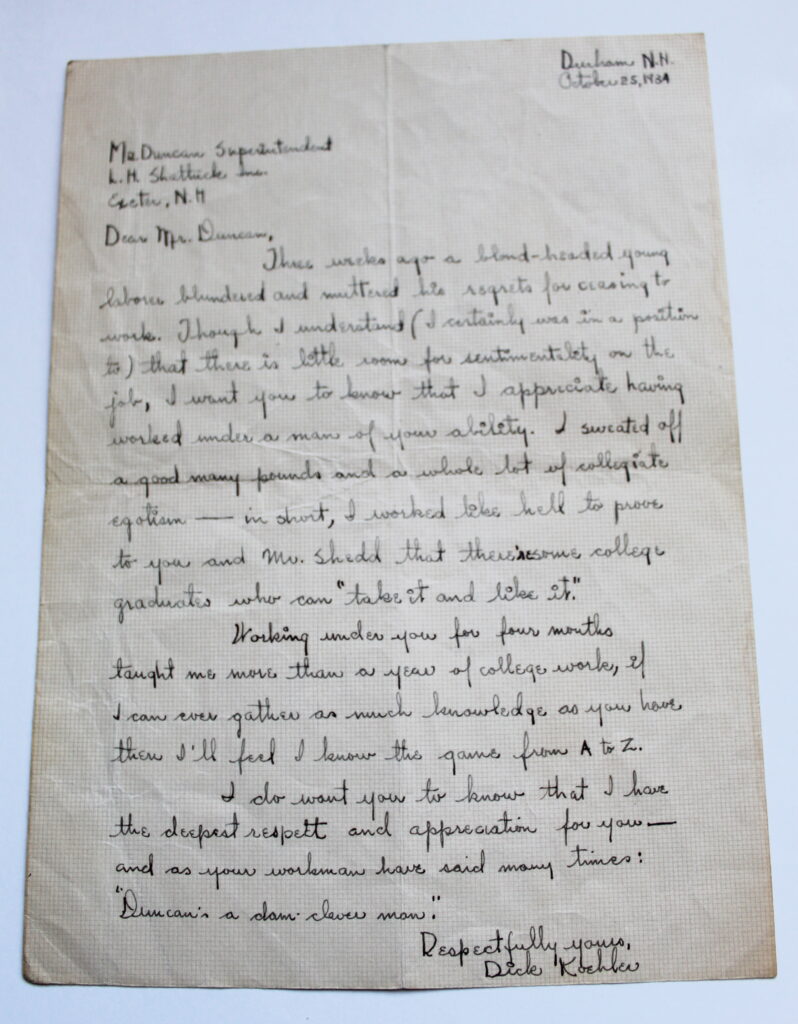 Durham N.H.
October 25, 1934
Mr. Duncan Superintendent
L.H. Shattuck Inc.
Exeter, N.H
Dear Mr. Duncan,
Three weeks ago a blond-headed young
laborer blundered and muttered his regrets for ceasing to
work. Though I understand (I certainly was in a position
to) that there is little room for sentimentality on the
job, I want you to know that I appreciate having
worked under a man of your ability. I sweated off
a good many pounds and a whole lot of collegiate
egotism — in short, I worked like hell to prove
to you and Mr. Shedd that there's some college
graduates who can "take it and like it."
Working under you for four months
taught me more than a year of college work, if
I can ever gather as much knowledge as you have
then I'll feel I know the game from A to Z.
I do want you to know that I have
the deepest respett and appreciation for you —
and as your workman have said many times:
"Duncan's a dam clever man."
Respectfully yours,
Dick Koehler